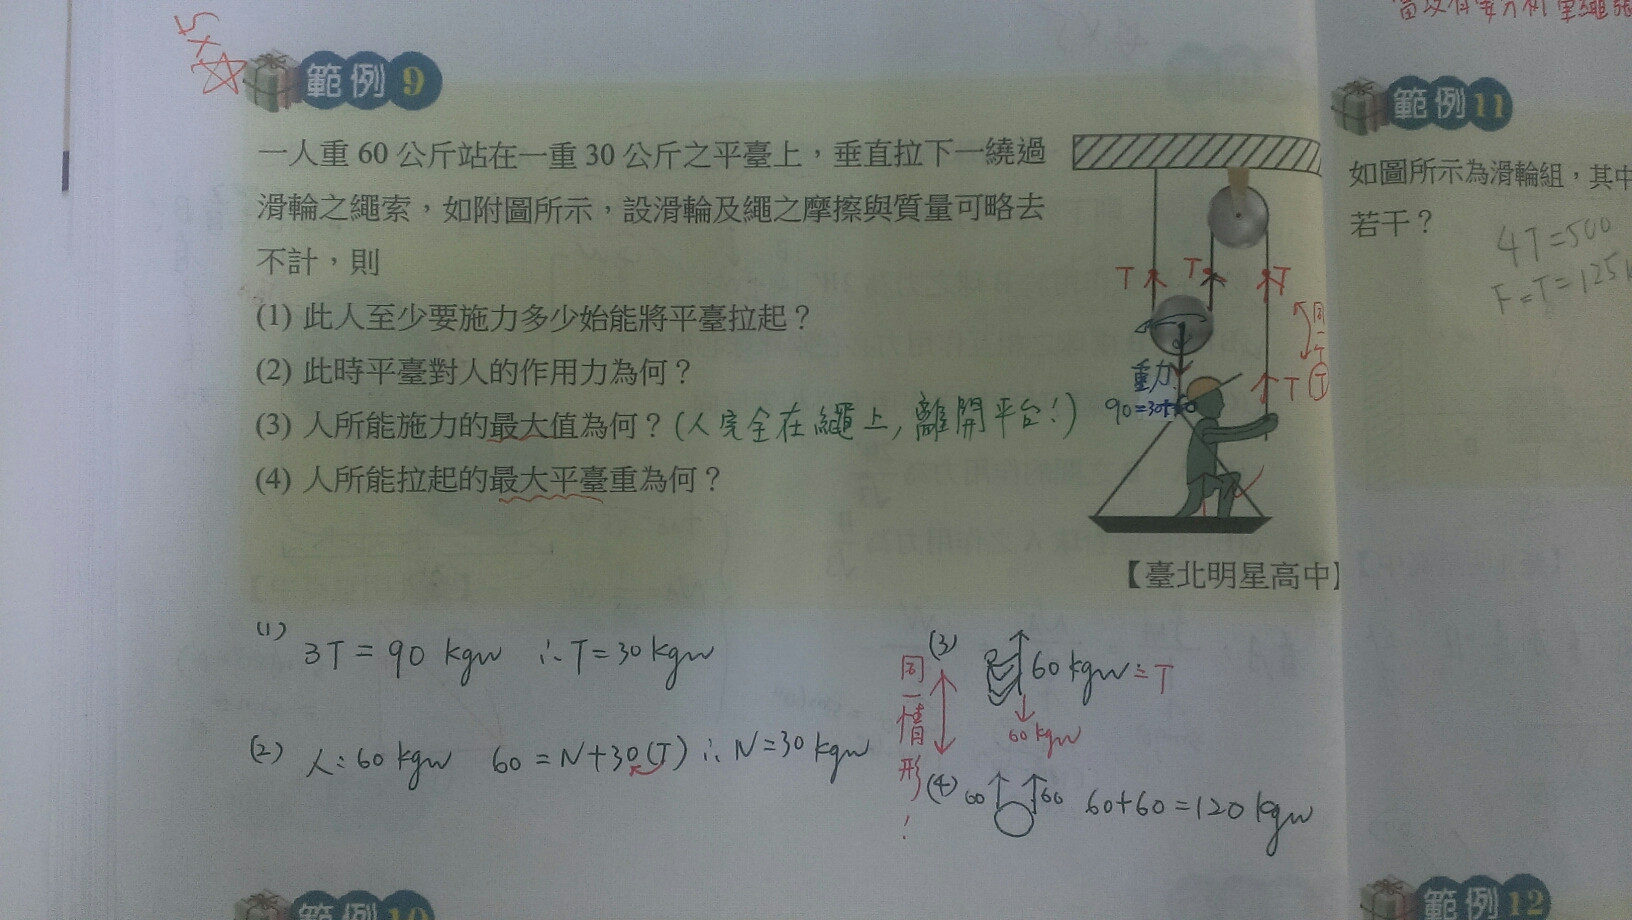 5x☆
範例 9
一人重 60 公斤站在一重 30 公斤之平臺上，垂直拉下一繞過
滑輪之繩索，如附圖所示，設滑輪及繩之摩擦與質量可略去
不計，則
(1) 此人至少要施力多少始能將平臺拉起？
(2) 此時平臺對人的作用力為何？
(3) 人所能施力的最大值為何？(人完全在繩上，離開平台！)
(4) 人所能拉起的最大平臺重為何？
T T T
同一T
T
重力
90=30+60
【臺北明星高中】
(1) 3T = 90 kgw ∴T=30kgw
(2) 人:60 kgw 60 = N+30(T) ∴N=30 kgw
同一情形！
(3) 60 kgw = T
60 kgw
(4) 60 60 60+60=120 kgw
範例 10
範例 11
如圖所示為滑輪組，其中
若干？
4T=500
F=T=125
範例 12